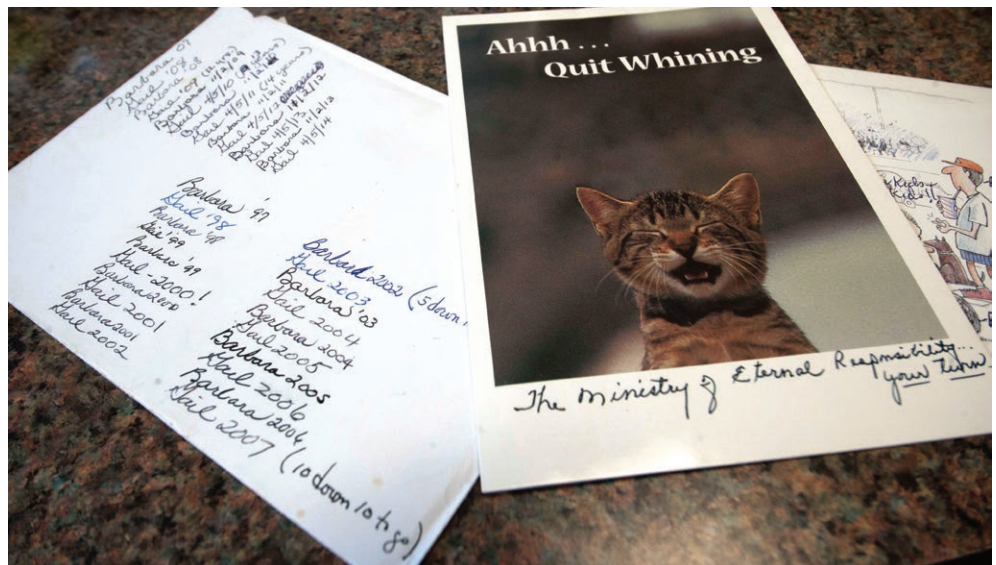 Barbara '07
Gail '08
Barbara '08
Gail '09
Barbara 11/2/09
Gail 4/5/10
Barbara
Gail 4/5/11 (14 years)
Barbara 11/2/11
Gail 4/5/12
Barbara 11/2/12
Gail 4/5/13
Barbara 11/2/13
Gail 4/5/14
Barbara '97
Gail '98
Barbara '98
Gail '99
Barbara '99
Gail - 2000!
Barbara 2000
Gail 2001
Barbara 2001
Gail 2002
Barbara 2002 (5 down,
Gail 2003
Barbara '03
Gail 2004
Barbara 2004
Gail 2005
Barbara 2005
Gail 2006
Barbara 2006
Gail 2007 (10 down 10 to go)
Ahhh ...
Quit Whining
The Ministry of Eternal Responsibility...
your turn